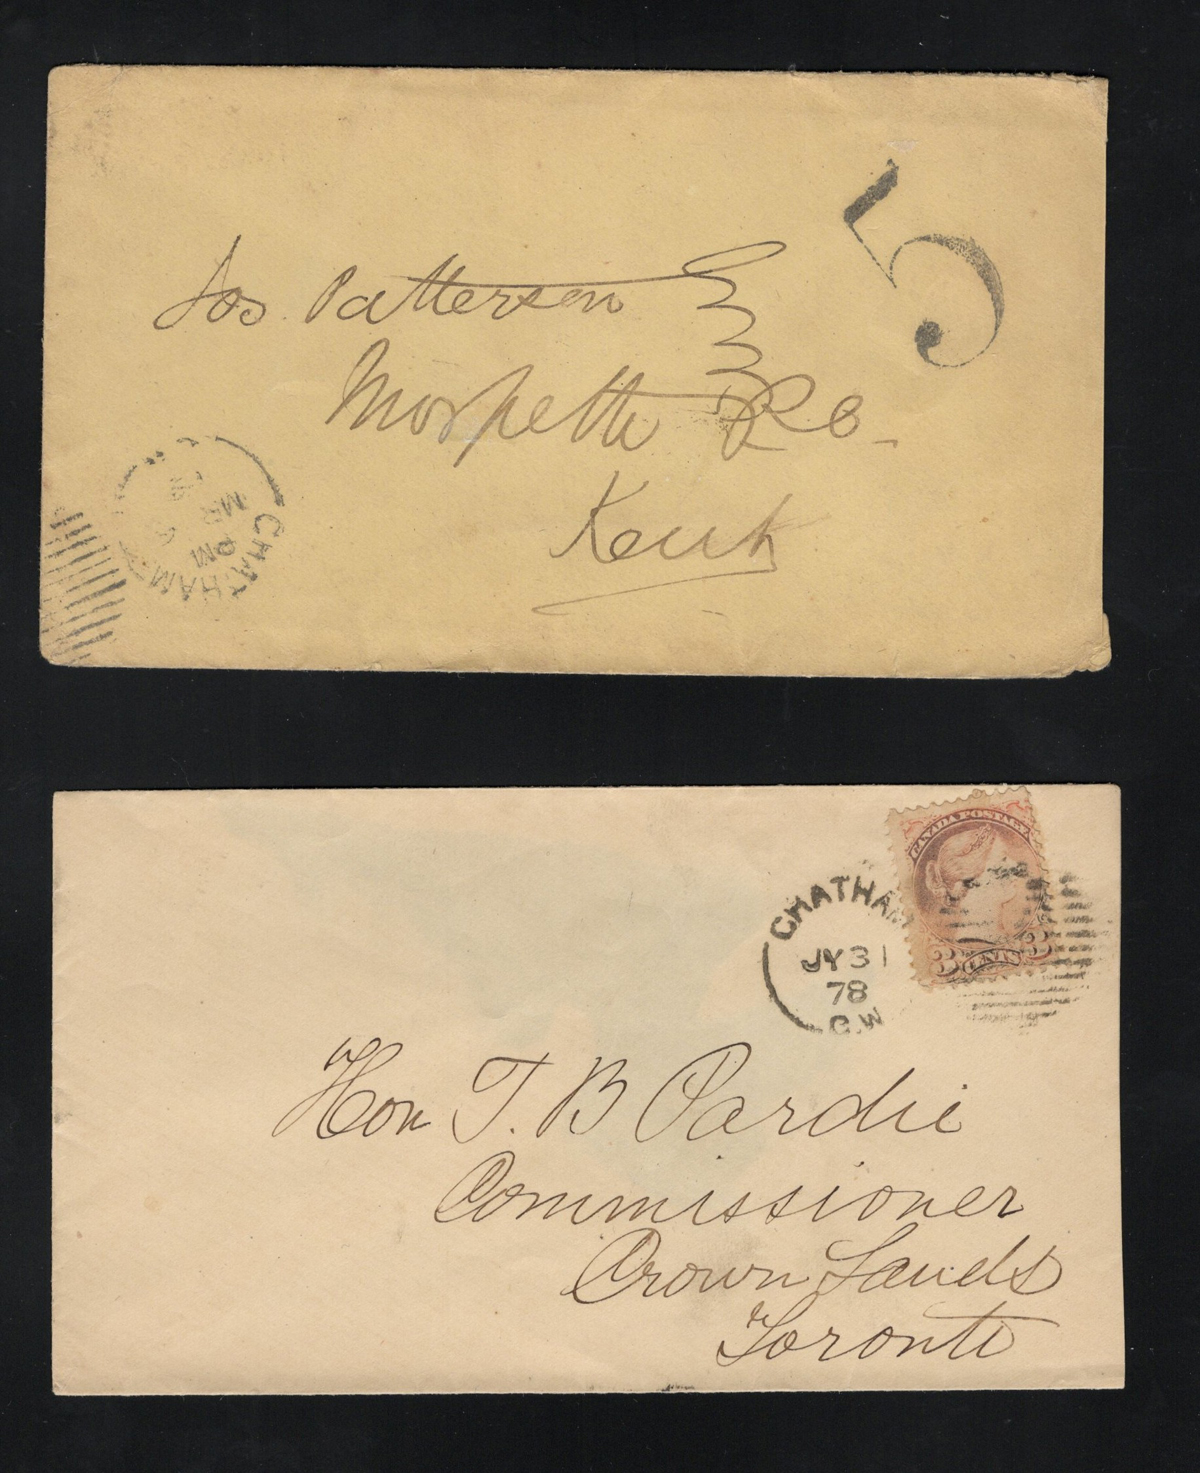 5
Jos. Patterson
Morpeth P.O.
Kent
CHATHAM
PM
MR
CANADA POSTAGE
3 CENTS 3
CHATHAM
JY 31
78
C.W
Hon T. B Pardie
Commissioner
Crown Lands
Toronto